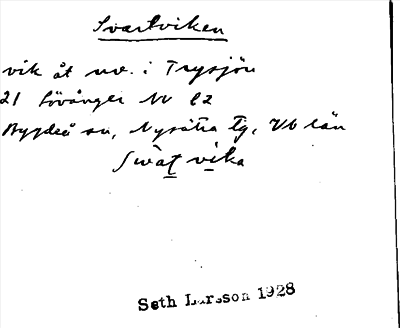 Svartviken
vik åt nv. i Trysjön
21 Lövånger NV l2
Bygdeå sn, Nysätra tg, Vb län
Swat vika
Seth Larsson 1928